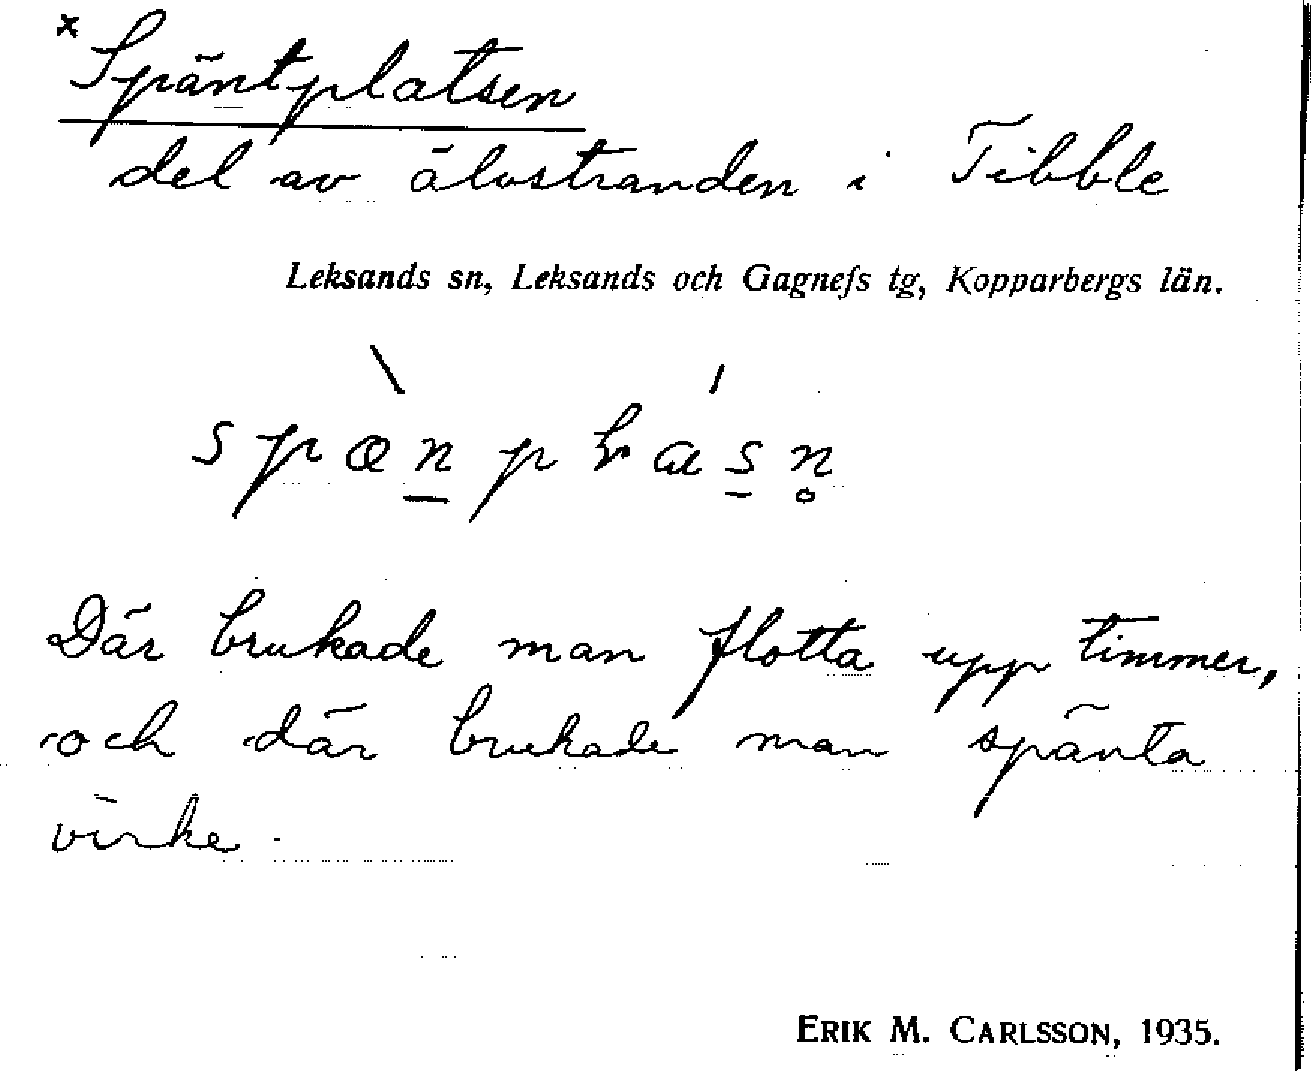 ×Späntplatsen
del av älvstranden i Tibble
Leksands sn, Leksands och Gagnefs tg, Kopparbergs län.
Där brukade man flotta upp timmer,
och där brukade man spänta
virke.
ERIK M. CARLSSON, 1935.